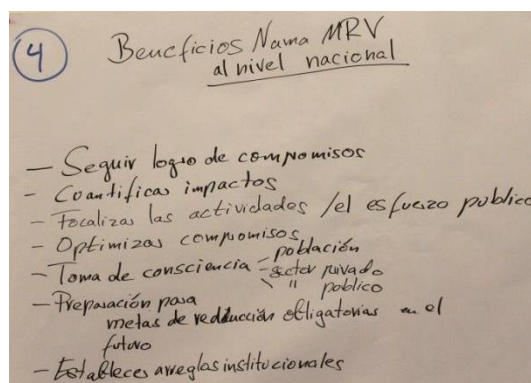 4
Beneficios Nama MRV
al nivel nacional
- Seguir logro de compromisos
- Cuantificar impactos
- Focalizar las actividades / el esfuerzo publico
- Optimizar compromisos
- población
- Toma de consciencia - sector privado
\ " publico
- Preparación para
metas de reducción obligatorias en el
futuro
- Establecer arreglos institucionales